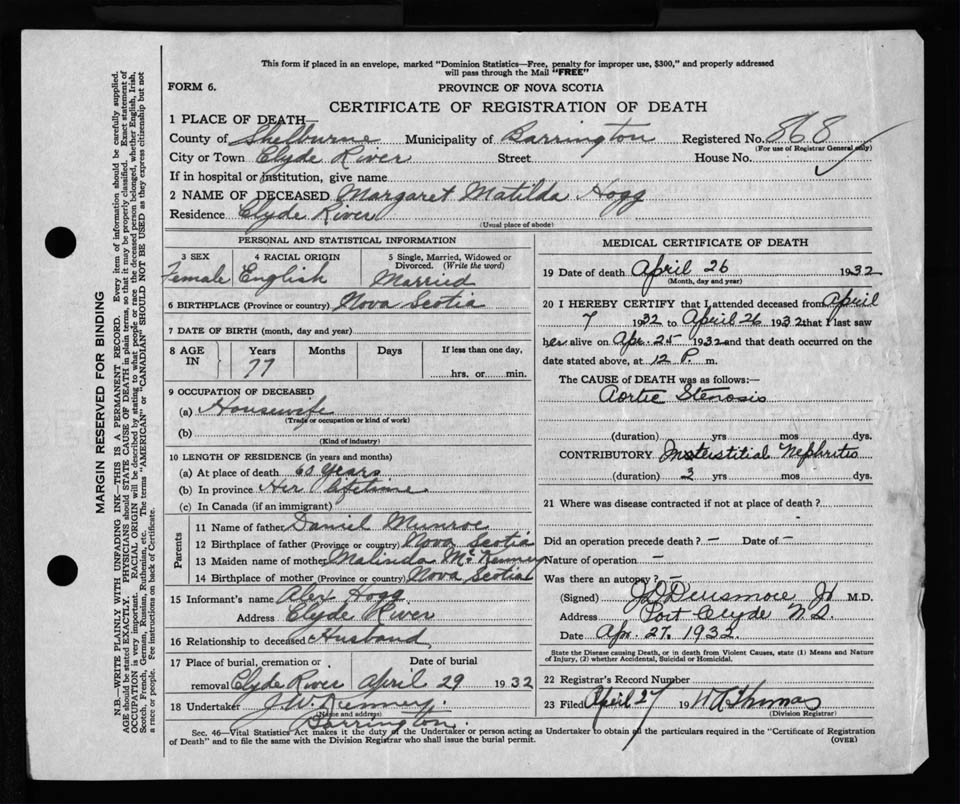 This form if placed in an envelope, marked "Dominion Statistics—Free, penalty for improper use, $300," and properly addressed
will pass through the Mail "FREE"
FORM 6.
PROVINCE OF NOVA SCOTIA
CERTIFICATE OF REGISTRATION OF DEATH
1 PLACE OF DEATH—
County of Shelburne Municipality of Barrington Registered No. 868
(For use of Registrar General only)
City or Town Clyde River Street House No.
If in hospital or institution, give name
2 NAME OF DECEASED Margaret Matilda Hogg
Residence Clyde River
(Usual place of abode)
PERSONAL AND STATISTICAL INFORMATION
3 SEX 4 RACIAL ORIGIN 5 Single, Married, Widowed or
Divorced. (Write the word)
Female English Married
6 BIRTHPLACE (Province or country) Nova Scotia
7 DATE OF BIRTH (month, day and year)
8 AGE IN Years Months Days If less than one day,
77 hrs. or min.
9 OCCUPATION OF DECEASED
(a) Housewife
(Trade or occupation or kind of work)
(b)
(Kind of industry)
10 LENGTH OF RESIDENCE (in years and months)
(a) At place of death 60 Years
(b) In province Her lifetime
(c) In Canada (if an immigrant)
Parents
11 Name of father Daniel Munroe
12 Birthplace of father (Province or country) Nova Scotia
13 Maiden name of mother Malinda McKenney
14 Birthplace of mother (Province or country) Nova Scotia
15 Informant's name Alex Hogg
Address Clyde River
16 Relationship to deceased Husband
17 Place of burial, cremation or Date of burial
removal Clyde River April 29 1932
18 Undertaker J.W. Kenney
(Name and address)
Barrington.
MEDICAL CERTIFICATE OF DEATH
19 Date of death April 26 1932
(Month, day and year)
20 I HEREBY CERTIFY that I attended deceased from April
7 1932 to April 26 1932 that I last saw
her alive on Apr. 25 1932 and that death occurred on the
date stated above, at 12 P. m.
The CAUSE OF DEATH was as follows:—
Aortic Stenosis
(duration) yrs mos dys.
CONTRIBUTORY Interstitial Nephritis
(duration) 3 yrs mos dys.
21 Where was disease contracted if not at place of death?
Did an operation precede death? – Date of –
Nature of operation –
Was there an autopsy? –
(Signed) Densmore M.D.
Address Port Clyde N.S.
Date Apr. 27. 1932.
State the Disease causing Death, or in death from Violent Causes, state (1) Means and Nature
of Injury, (2) whether Accidental, Suicidal or Homicidal.
22 Registrar's Record Number
23 Filed April 27 19 Thomas
(Division Registrar)
Sec. 46—Vital Statistics Act makes it the duty of the Undertaker or person acting as Undertaker to obtain all the particulars required in the "Certificate of Registration
of Death" and to file the same with the Division Registrar who shall issue the burial permit.
(OVER)
MARGIN RESERVED FOR BINDING
N.B.—WRITE PLAINLY WITH UNFADING INK—THIS IS A PERMANENT RECORD. Every item of information should be carefully supplied.
AGE should be stated EXACTLY. PHYSICIANS should STATE CAUSE OF DEATH in plain terms, so that it may be properly classified. Exact statement of
OCCUPATION is very important. RACIAL ORIGIN will be described by stating to what people or race the deceased person belonged, whether English, Irish,
Scotch, French, German, Russian, Ruthenian, etc. The terms "AMERICAN" or "CANADIAN" SHOULD NOT BE USED as they express citizenship but not
a race or people. See instructions on back of Certificate.